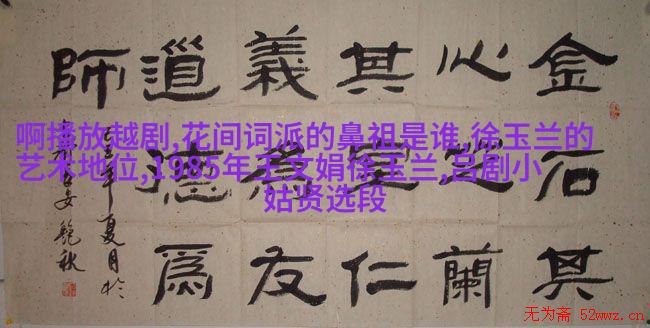 啊播放越剧,花间词派的鼻祖是谁,徐玉兰的
艺术地位,1985年王文娟徐玉兰,吕剧小
姑贤选段
金石其
心芝蘭
其室仁
義為友
道德為
師
年夏月於
安鮑秋
无为斋 52wwz.cn